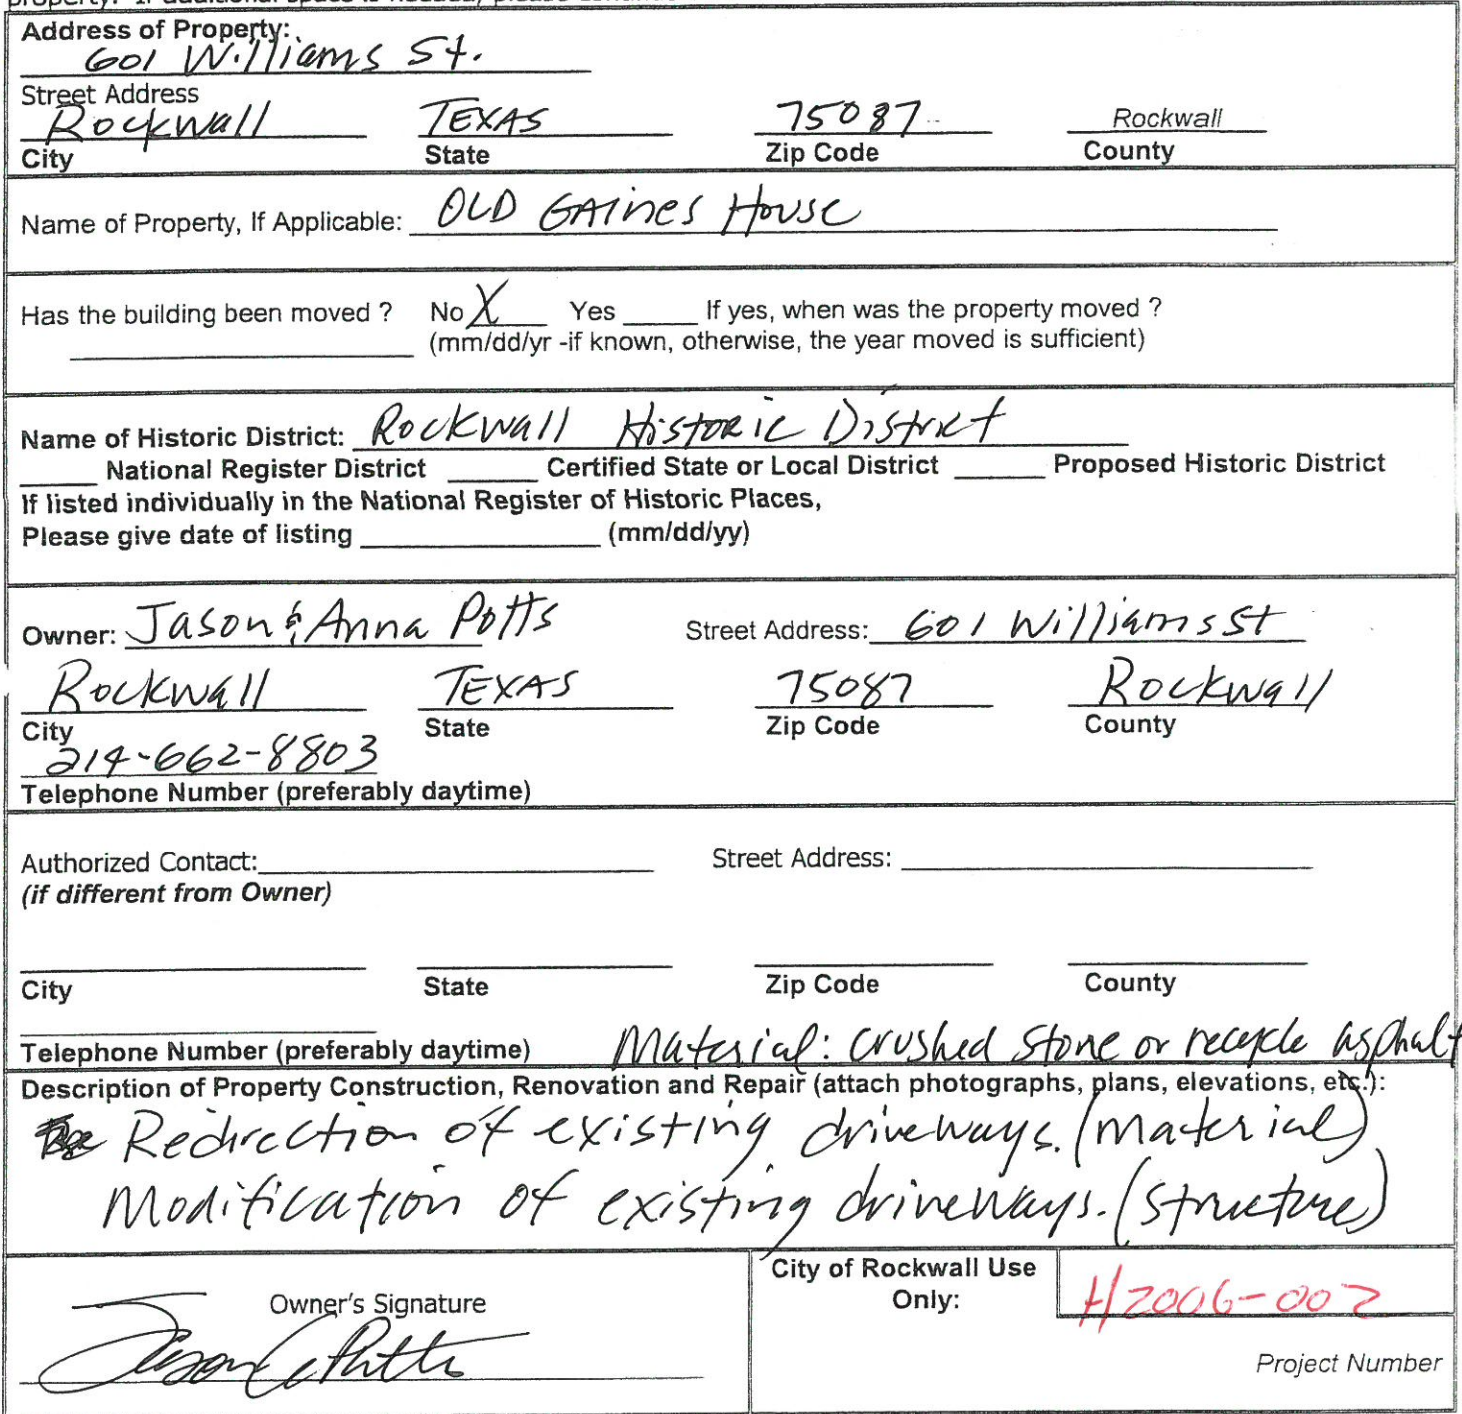 Address of Property:
601 Williams St.
Street Address
Rockwall TEXAS 75087 Rockwall
City State Zip Code County
Name of Property, If Applicable: OLD GAines House
Has the building been moved ? No X Yes _____ If yes, when was the property moved ?
(mm/dd/yr -if known, otherwise, the year moved is sufficient)
Name of Historic District: Rockwall Historic District
_____ National Register District _____ Certified State or Local District _____ Proposed Historic District
If listed individually in the National Register of Historic Places,
Please give date of listing _____ (mm/dd/yy)
Owner: Jason & Anna Potts Street Address: 601 Williams St
Rockwall TEXAS 75087 Rockwall
City State Zip Code County
214-662-8803
Telephone Number (preferably daytime)
Authorized Contact: _____ Street Address: _____
(if different from Owner)
City State Zip Code County
Telephone Number (preferably daytime) Material: crushed stone or recycle asphalt
Description of Property Construction, Renovation and Repair (attach photographs, plans, elevations, etc.):
Redirection of existing driveways. (Material)
Modification of existing driveways. (structure)
Owner's Signature
City of Rockwall Use
Only:
H2006-002
Jason Potts
Project Number